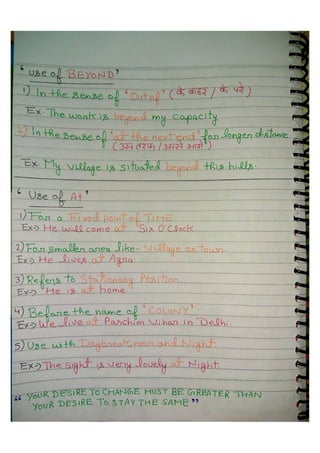 ‘ Use of BEYOND’
1) In the sense of ‘Out of’ (के बाहर / के परे)
Ex. The work is beyond my capacity
2) In the sense of "at the next end" for longer distance
(उस तरफ / उससे आगे)
Ex. My village is situated beyond this hills.
‘ Use of At’
1) For a Fixed point of TIME
Ex→ He will come at Six O'Clock
2) For smaller area like- Village or town
Ex→ He lives at Agra.
3) Refers to Stationary Position
Ex→ He is at home.
4) Before the name of ‘COLONY’
Ex→ We live at Paschim Vihar in Delhi.
5) Use with Daybreak, noon and Night.
Ex→ The sight is very lovely at Night.
“ YOUR DESIRE TO CHANGE MUST BE GREATER THAN
YOUR DESIRE TO STAY THE SAME ”